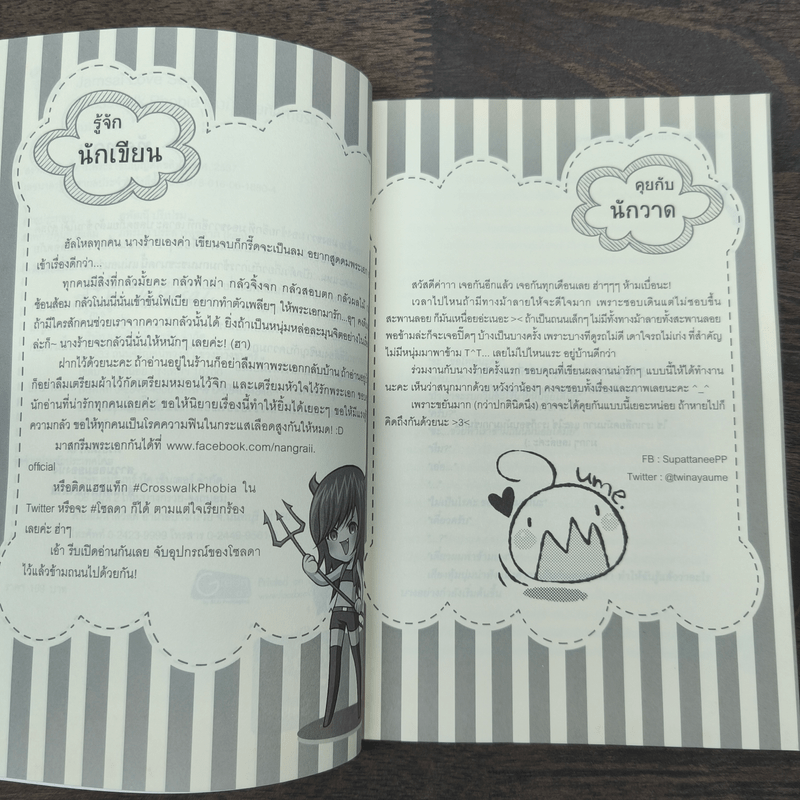 รู้จัก
นักเขียน
ฮัลโหลทุกคน นางร้ายเองค่า เขียนจบก็กรี๊ดจะเป็นลม อยากสูดดมพระเอก
เข้าเรื่องดีกว่า...
ทุกคนมีสิ่งที่กลัวมั้ยคะ กลัวฟ้าผ่า กลัวจิ้งจก กลัวสอบตก กลัวผลไม้
ซ้อนส้อม กลัวโน่นนี่นั่นเข้าขั้นโฟเบีย อยากทำตัวเพลียๆ ให้พระเอกมารัก...
ถ้ามีใครสักคนช่วยเราจากความกลัวนั้นได้ ยิ่งถ้าเป็นหนุ่มหล่อละมุนจิตอย่างใน
ล่ะก็~ นางร้ายจะกลัวนี่นั่นให้หนักๆ เลยค่ะ! (ฮา)
ฝากไว้ด้วยนะคะ ถ้าอ่านอยู่ในร้านก็อย่าลืมพาพระเอกกลับบ้าน ถ้าอ่านอยู่
ก็อย่าลืมเตรียมผ้าไว้กัดเตรียมหมอนไว้จิก และเตรียมหัวใจไว้รักพระเอก
นักอ่านที่น่ารักทุกคนเลยค่ะ ขอให้นิยายเรื่องนี้ทำให้ยิ้มได้เยอะๆ ขอให้มี
ความกลัว ขอให้ทุกคนเป็นโรคความฟินในกระแสเลือดสูงกันให้หมด! :D
มาสกรีมพระเอกกันได้ที่ www.facebook.com/nangraii.
official
หรือติดแฮชแท็ก #CrosswalkPhobia ใน
Twitter หรือจะ #โซลดา ก็ได้ ตามแต่ใจเรียกร้อง
เลยค่ะ ฮ่าๆ
เอ้า รีบเปิดอ่านกันเลย จับอุปกรณ์ของโซลดา
ไว้แล้วข้ามถนนไปด้วยกัน!
คุยกับ
นักวาด
สวัสดีค่าาา เจอกันอีกแล้ว เจอกันทุกเดือนเลย ฮ่าๆๆๆ ห้ามเบื่อนะ!
เวลาไปไหนถ้ามีทางม้าลายให้จะดีใจมาก เพราะชอบเดินแต่ไม่ชอบขึ้น
สะพานลอย ก็มันเหนื่อยอ่ะเนอะ >< ถ้าเป็นถนนเล็กๆ ไม่มีทั้งทางม้าลายทั้งสะพานลอย
พอข้ามล่ะก็จะเจอปี๊ดๆ บ้างเป็นบางครั้ง เพราะบางทีดูรถไม่ดี เดาใจรถไม่เก่ง ที่สำคัญ
ไม่มีหนุ่มมาพาข้าม T^T... เลยไม่ไปไหนแระ อยู่บ้านดีกว่า
ร่วมงานกับนางร้ายครั้งแรก ขอบคุณที่เขียนผลงานน่ารักๆ แบบนี้ให้ได้ทำงาน
นะคะ เห็นว่าสนุกมากด้วย หวังว่าน้องๆ คงจะชอบทั้งเรื่องและภาพเลยนะคะ ^_^
เพราะขยันมาก (กว่าปกตินิดนึง) อาจจะได้คุยกันแบบนี้เยอะหน่อย ถ้าหายไปก็
คิดถึงกันด้วยนะ >3<
FB : SupattaneePP
Twitter : @twinayaume
ume.